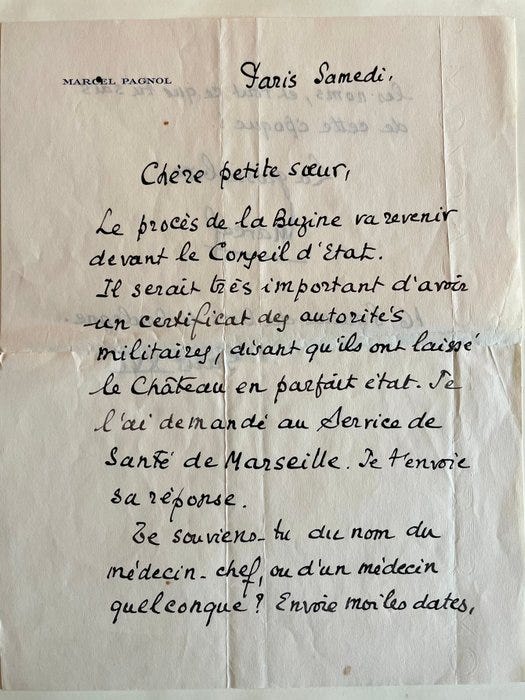 MARCEL PAGNOL
Paris Samedi,
Chère petite sœur,
Le procès de la Buzine va revenir
devant le Conseil d'Etat.
Il serait très important d'avoir
un certificat des autorités
militaires, disant qu'ils ont laissé
le Château en parfait état. Je
l'ai demandé au Service de
Santé de Marseille. Je t'envoie
sa réponse.
Te souviens-tu du nom du
médecin-chef, ou d'un médecin
quelconque ? Envoie moi les dates,